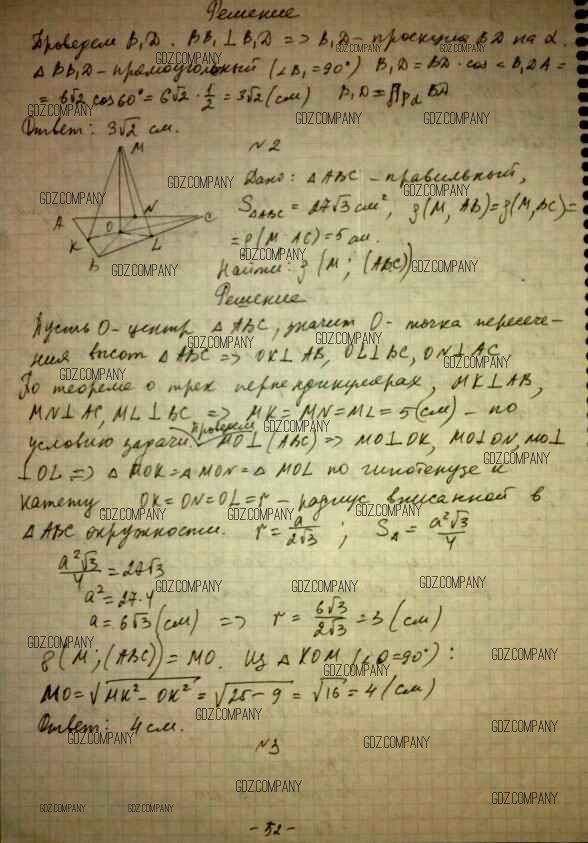 Решение
Проведем B₁D. BB₁ ⊥ B₁D => B₁D – проекция BD на α.
△BB₁D – прямоугольный (∠B₁ = 90°) B₁D = BD · cos ∠B₁DA =
= 6√2 cos60° = 6√2 · 1/2 = 3√2 (см) B₁D = Прα BD
Ответ: 3√2 см.
N2
M
A
N
C
O
K
L
B
Дано: △ABC – правильный,
S△ABC = 27√3 см², ρ(M, AB) = ρ(M, BC) =
= ρ(M AC) = 5 см.
Найти: ρ(M; (ABC))
Решение
Пусть O – центр △ABC, значит O – точка пересече-
ния высот △ABC => OK ⊥ AB, OL ⊥ BC, ON ⊥ AC
По теореме о трех перпендикулярах, MK ⊥ AB,
MN ⊥ AC, ML ⊥ BC => MK = MN = ML = 5 (см) – по
Проведем
условию задачи. MO ⊥ (ABC) => MO ⊥ OK, MO ⊥ ON, MO ⊥
⊥ OL => △MOK = △MON = △MOL по гипотенузе и
катету OK = ON = OL = r – радиус вписанной в
△ABC окружности. r = a/2√3 ; S△ = a²√3/4
a²√3/4 = 27√3
a² = 27·4
a = 6√3 (см) => r = 6√3/2√3 = 3 (см)
ρ(M; (ABC)) = MO. Из △KOM (∠O = 90°):
MO = √MK² – OK² = √25 – 9 = √16 = 4 (см)
Ответ: 4 см.
N3
- 52 -
GDZ.COMPANY